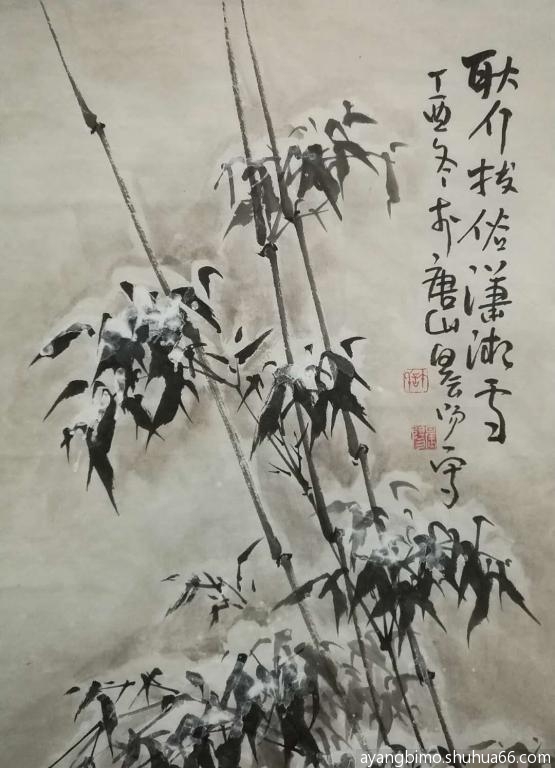 耿介拔俗潇湘雪
丁酉冬于唐山晨阳写
ayangbimo.shuhua66.com